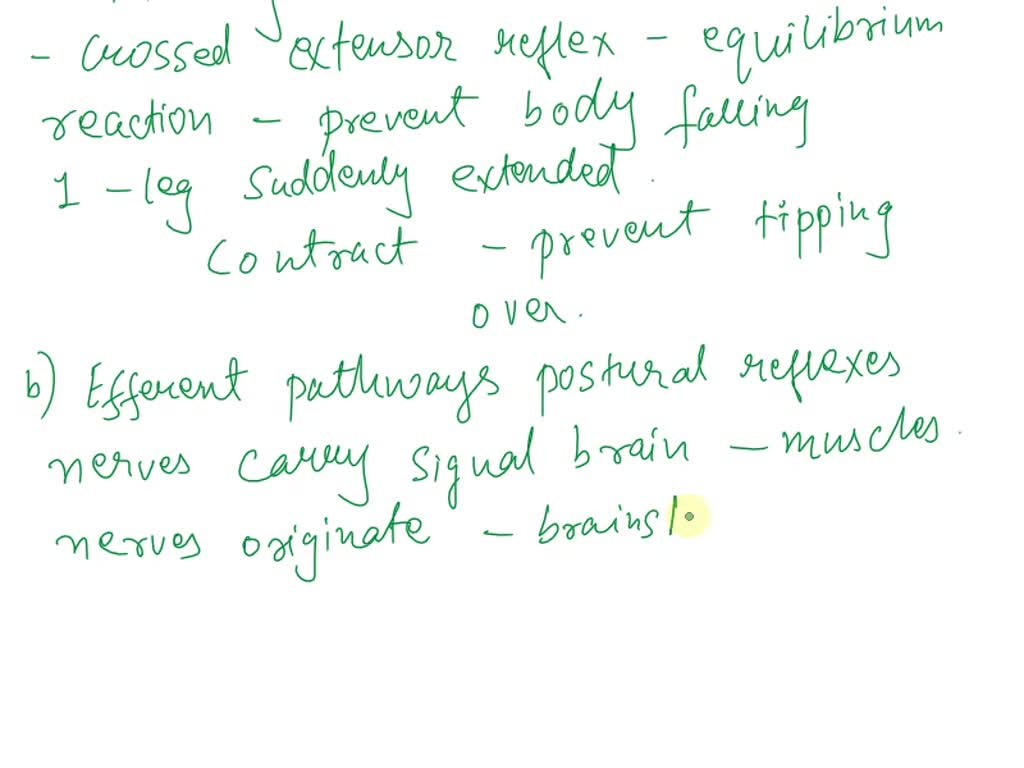 - crossed extensor reflex - equilibrium
reaction - prevent body falling
1 - leg suddenly extended.
contract - prevent tipping
over.
b) Efferent pathways postural reflexes
nerves carry signal brain - muscles.
nerves originate - brains